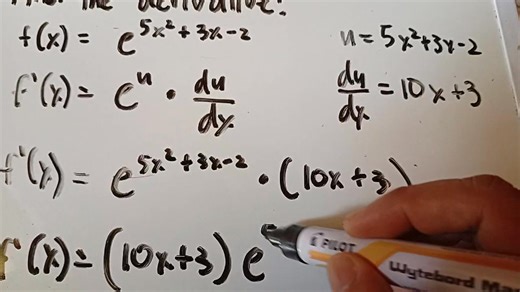 the derivative:
f(x) = e^{5x²+3x-2}
u = 5x²+3x-2
f'(x) = e^u · du/dx
du/dx = 10x+3
f'(x) = e^{5x²+3x-2} · (10x+3)
f'(x) = (10x+3) e
PILOT
Wytebord Ma